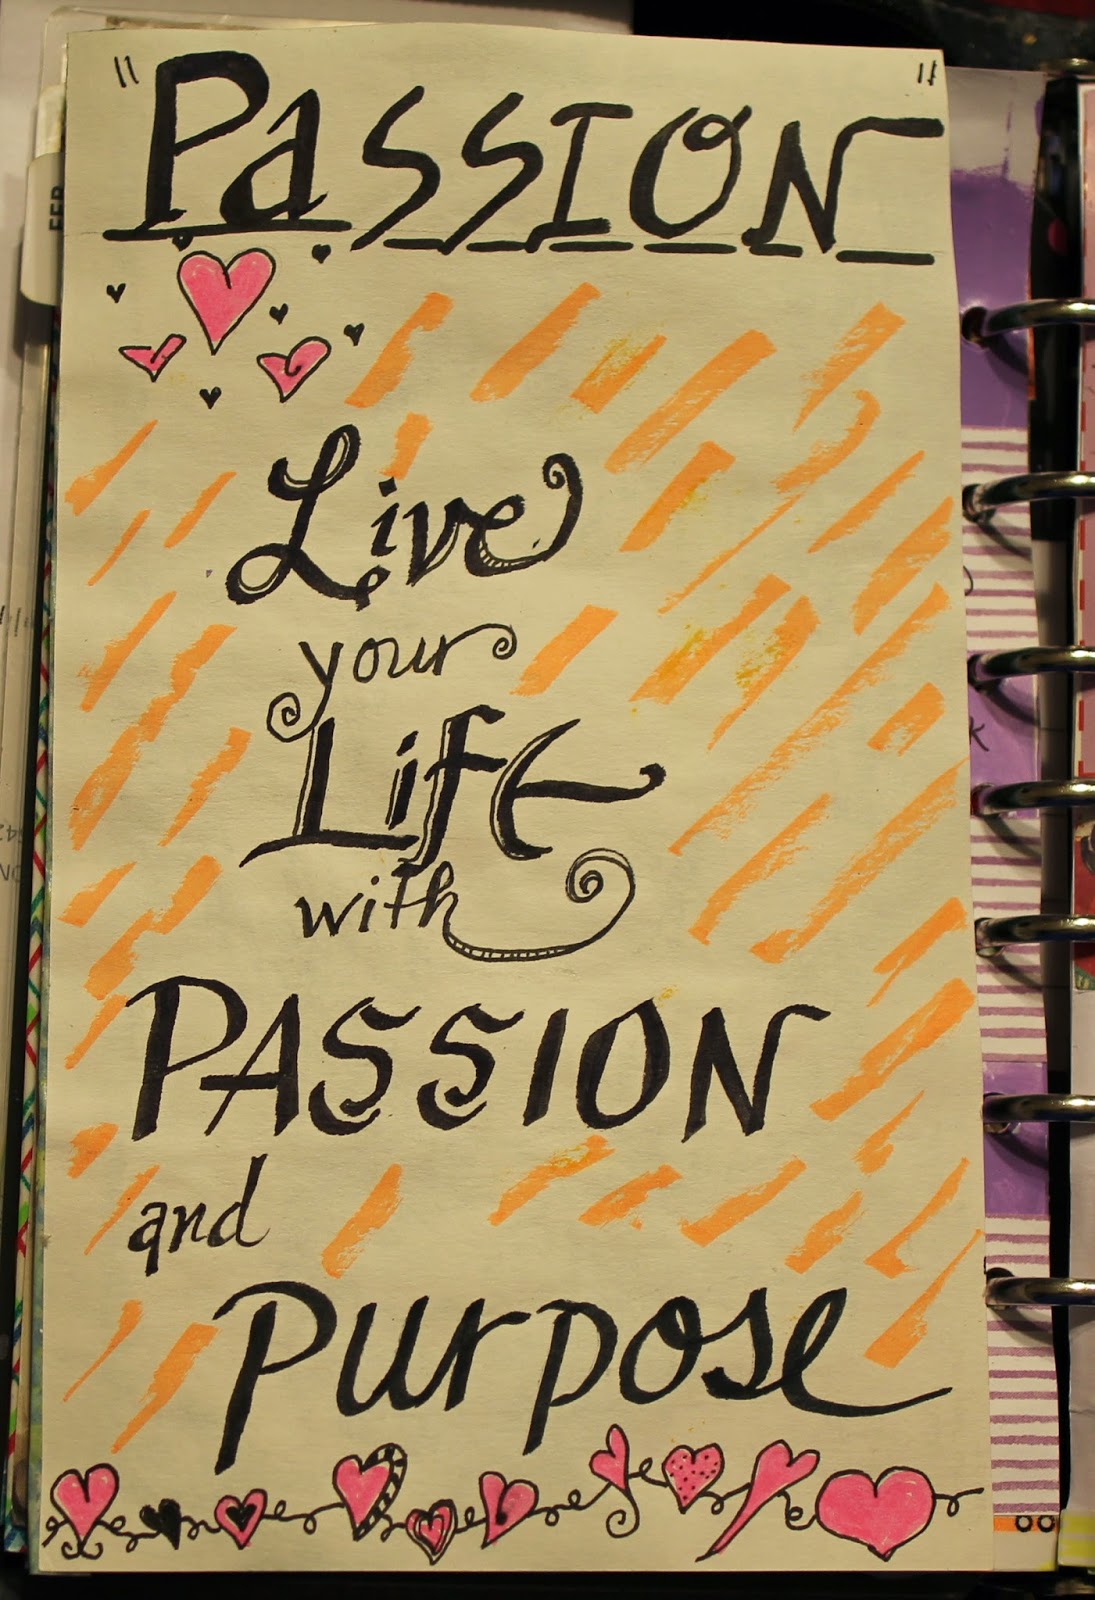 "PaSSION"
Live
your
Life
with
PASSION
and
Purpose
FEB